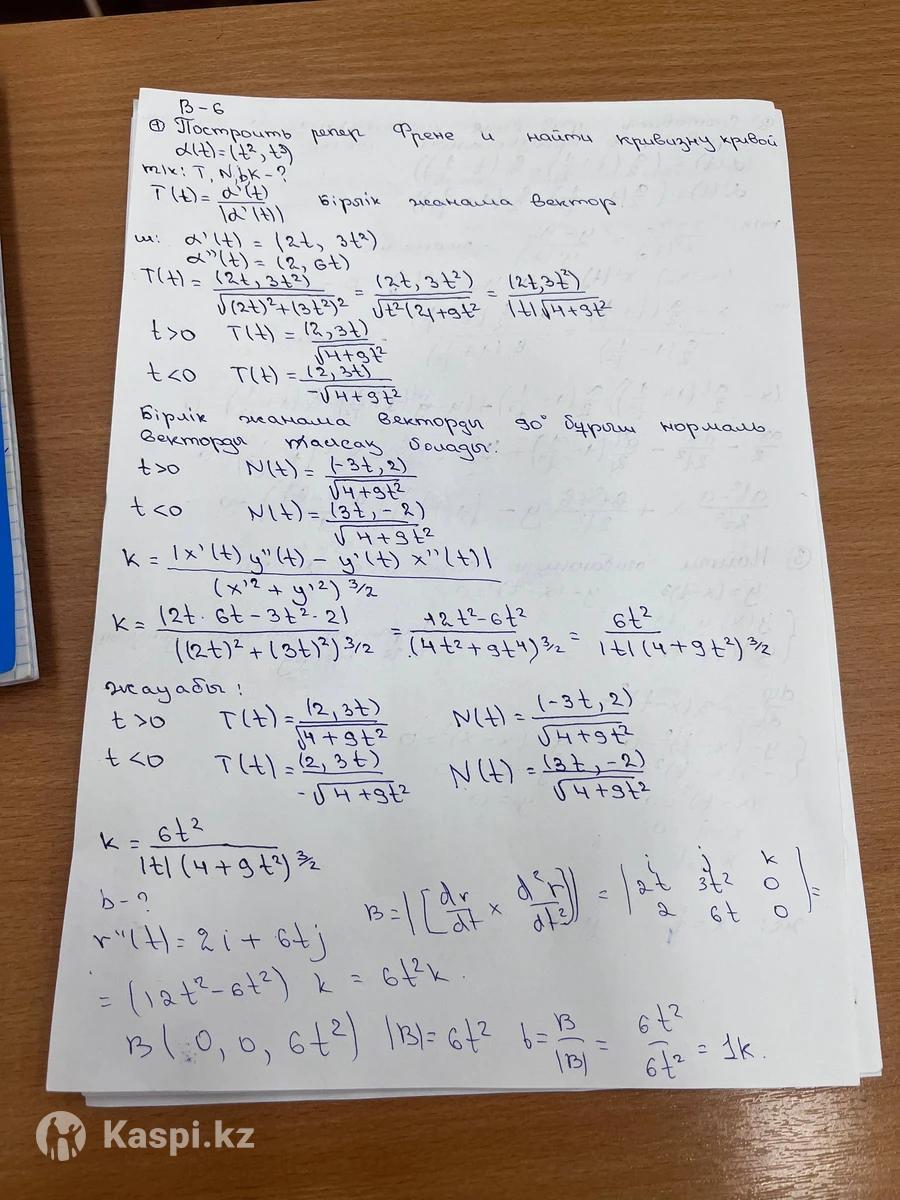 В-6
① Построить репер Френе и найти кривизну кривой
α(t)=(t², t³)
т/к: T, N, b, K-?
T(t)= α'(t) / |α'(t)| Бірлік жанама вектор
ш: α'(t) = (2t, 3t²)
α''(t) = (2, 6t)
T(t)= (2t, 3t²) / √((2t)²+(3t²)²) = (2t, 3t²) / √t²(4+9t² = (2t,3t²) / |t|√4+9t²
t>0 T(t)= (2, 3t) / √4+9t²
t<0 T(t)= (2, 3t) / -√4+9t²
Бірлік жанама векторды 90° бұрыш нормаль
векторды тапсақ болады:
t>0 N(t)= (-3t, 2) / √4+9t²
t<0 N(t)= (3t, -2) / √4+9t²
k = |x'(t) y''(t) - y'(t) x''(t)| / (x'²+y'²)^3/2
k= |2t·6t-3t²·2| / ((2t)²+(3t)²)^3/2 = 12t²-6t² / (4t²+9t⁴)^3/2 = 6t² / |t|(4+9t²)^3/2
жауабы:
t>0 T(t)= (2, 3t) / √4+9t² N(t)= (-3t, 2) / √4+9t²
t<0 T(t)= (2, 3t) / -√4+9t² N(t)= (3t, -2) / √4+9t²
k = 6t² / |t|(4+9t²)^3/2
b-?
B=|[dr/dt × d²r/dt²]| = |i j k; 2t 3t² 0; 2 6t 0| =
r''(t)=2i+6tj
= (12t²-6t²) k = 6t²k.
B(0, 0, 6t²) |B|=6t² b= B/|B| = 6t²/6t² = 1k.
Kaspi.kz